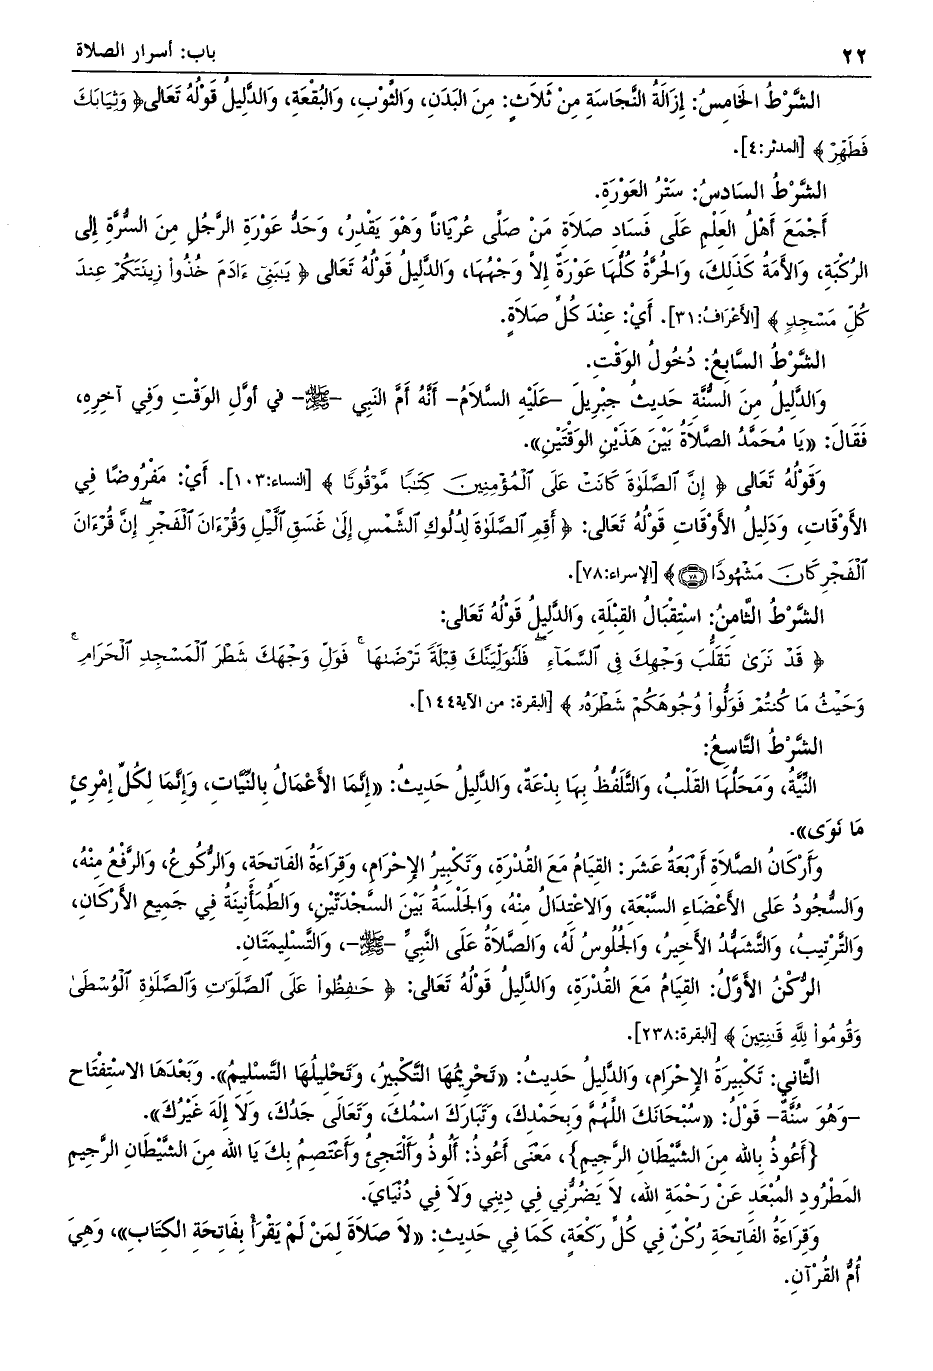 ٢٢ باب: أسرار الصلاة
الشَّرْطُ الخَامِسُ: إِزَالَةُ النَّجَاسَةِ مِنْ ثَلَاثٍ: مِنَ البَدَنِ، وَالثَّوْبِ، وَالبُقْعَةِ، وَالدَّلِيلُ قَوْلُهُ تَعَالَى ﴿ وَثِيَابَكَ
فَطَهِّرْ ﴾ [المدثر:٤].
الشَّرْطُ السَّادِسُ: سَتْرُ العَوْرَةِ.
أَجْمَعَ أَهْلُ العِلْمِ عَلَى فَسَادِ صَلَاةِ مَنْ صَلَّى عُرْيَاناً وَهْوَ يَقْدِرُ، وَحَدُّ عَوْرَةِ الرَّجُلِ مِنَ السُّرَّةِ إِلى
الرُّكْبَةِ، وَالأَمَةُ كَذَلِكَ، وَالحُرَّةُ كُلُّهَا عَوْرَةٌ إِلاَّ وَجْهُهَا، وَالدَّلِيلُ قَوْلُهُ تَعَالَى ﴿ يَـٰبَنِىٓ ءَادَمَ خُذُوا۟ زِينَتَكُمْ عِندَ
كُلِّ مَسْجِدٍ ﴾ [الأَعْرَافُ:٣١]. أَيْ: عِنْدَ كُلِّ صَلاَةٍ.
الشَّرْطُ السَّابِعُ: دُخُولُ الوَقْتِ.
وَالدَّلِيلُ مِنَ السُّنَّةِ حَدِيثُ جِبْرِيلَ –عَلَيْهِ السَّلاَمُ– أَنَّهُ أَمَّ النَبِي –ﷺ– في أَوَّلِ الوَقْتِ وَفِي آخِرِهِ،
فَقَالَ: «يَا مُحَمَّدُ الصَّلاَةُ بَيْنَ هَذَيْنِ الوَقْتَيْنِ».
وَقَوْلُهُ تَعَالَى ﴿ إِنَّ ٱلصَّلَوٰةَ كَانَتْ عَلَى ٱلْمُؤْمِنِينَ كِتَـٰبًا مَّوْقُوتًا ﴾ [النساء:١٠٣]. أَيْ: مَفْرُوضًا فِي
الأَوْقَاتِ، وَدَلِيلُ الأَوْقَاتِ قَوْلُهُ تَعَالَى: ﴿ أَقِمِ ٱلصَّلَوٰةَ لِدُلُوكِ ٱلشَّمْسِ إِلَىٰ غَسَقِ ٱلَّيْلِ وَقُرْءَانَ ٱلْفَجْرِ ۖ إِنَّ قُرْءَانَ
ٱلْفَجْرِ كَانَ مَشْهُودًا ٧٨ ﴾ [الإسراء:٧٨].
الشَّرْطُ الثَّامِنُ: اسْتِقْبَالُ القِبْلَةِ، وَالدَّلِيلُ قَوْلُهُ تَعَالَى:
﴿ قَدْ نَرَىٰ تَقَلُّبَ وَجْهِكَ فِى ٱلسَّمَآءِ ۖ فَلَنُوَلِّيَنَّكَ قِبْلَةً تَرْضَىٰهَا ۚ فَوَلِّ وَجْهَكَ شَطْرَ ٱلْمَسْجِدِ ٱلْحَرَامِ ۚ
وَحَيْثُ مَا كُنتُمْ فَوَلُّوا۟ وُجُوهَكُمْ شَطْرَهُۥ ﴾ [البقرة: من الآية١٤٤].
الشَّرْطُ التَّاسِعُ:
النِّيَّةُ، وَمَحَلُّهَا القَلْبُ، وَالتَّلَفُّظُ بِهَا بِدْعَةٌ، وَالدَّلِيلُ حَدِيثُ: «إِنَّمَا الأَعْمَالُ بِالنِّيَّاتِ، وَإِنَّمَا لِكُلِّ إِمْرِئٍ
مَا نَوَى».
وَأَرْكَانُ الصَّلاَةِ أَرْبَعَةُ عَشَرَ: القِيَامُ مَعَ القُدْرَةِ، وَتَكْبِيرُ الإِحْرَامِ، وَقِرَاءَةُ الفَاتِحَةِ، وَالرُّكُوعُ، وَالرَّفْعُ مِنْهُ،
وَالسُّجُودُ عَلَى الأَعْضَاءِ السَّبْعَةِ، وَالاعْتِدَالُ مِنْهُ، وَالجَلْسَةُ بَيْنَ السَّجْدَتَيْنِ، وَالطُّمَأْنِينَةُ فِي جَمِيعِ الأَرْكَانِ،
وَالتَّرْتِيبُ، وَالتَّشَهُّدُ الأَخِيرُ، وَالجُلُوسُ لَهُ، وَالصَّلاَةُ عَلَى النَّبِيِّ –ﷺ–، وَالتَّسْلِيمَتَانِ.
الرُّكْنُ الأَوَّلُ: القِيَامُ مَعَ القُدْرَةِ، وَالدَّلِيلُ قَوْلُهُ تَعَالَى: ﴿ حَـٰفِظُوا۟ عَلَى ٱلصَّلَوَٰتِ وَٱلصَّلَوٰةِ ٱلْوُسْطَىٰ
وَقُومُوا۟ لِلَّهِ قَـٰنِتِينَ ﴾ [البقرة:٢٣٨].
الثَّانِي: تَكْبِيرَةُ الإِحْرَامِ، وَالدَّلِيلُ حَدِيثُ: «تَحْرِيمُهَا التَّكْبِيرُ، وَتَحْلِيلُهَا التَّسْلِيمُ». وَبَعْدَهَا الاسْتِفْتَاح
–وَهُوَ سُنَّةٌ– قَوْلُ: «سُبْحَانَكَ اللَّهُمَّ وَبِحَمْدِكَ، وَتَبَارَكَ اسْمُكَ، وَتَعَالَى جَدُكَ، وَلاَ إِلَهَ غَيْرُكَ».
{أَعُوذُ بِالله مِنَ الشَّيْطَانِ الرَّجِيمِ}، مَعْنَى أَعُوذُ: أَلُوذُ وَأَلْتَجِئُ وَأَعْتَصِمُ بِكَ يَا الله مِنَ الشَّيْطَانِ الرَّجِيمِ
المَطْرُودِ المُبْعَدِ عَنْ رَحْمَةِ الله، لاَ يَضُرُّنِي فِي دِينِي وَلاَ فِي دُنْيَايَ.
وَقِرَاءَةُ الفَاتِحَةِ رُكْنٌ فِي كُلِّ رَكْعَةٍ، كَمَا فِي حَدِيثِ: «لاَ صَلاَةَ لِمَنْ لَمْ يَقْرَأْ بِفَاتِحَةِ الكِتَابِ»، وَهِيَ
أُمُّ القُرْآنِ.